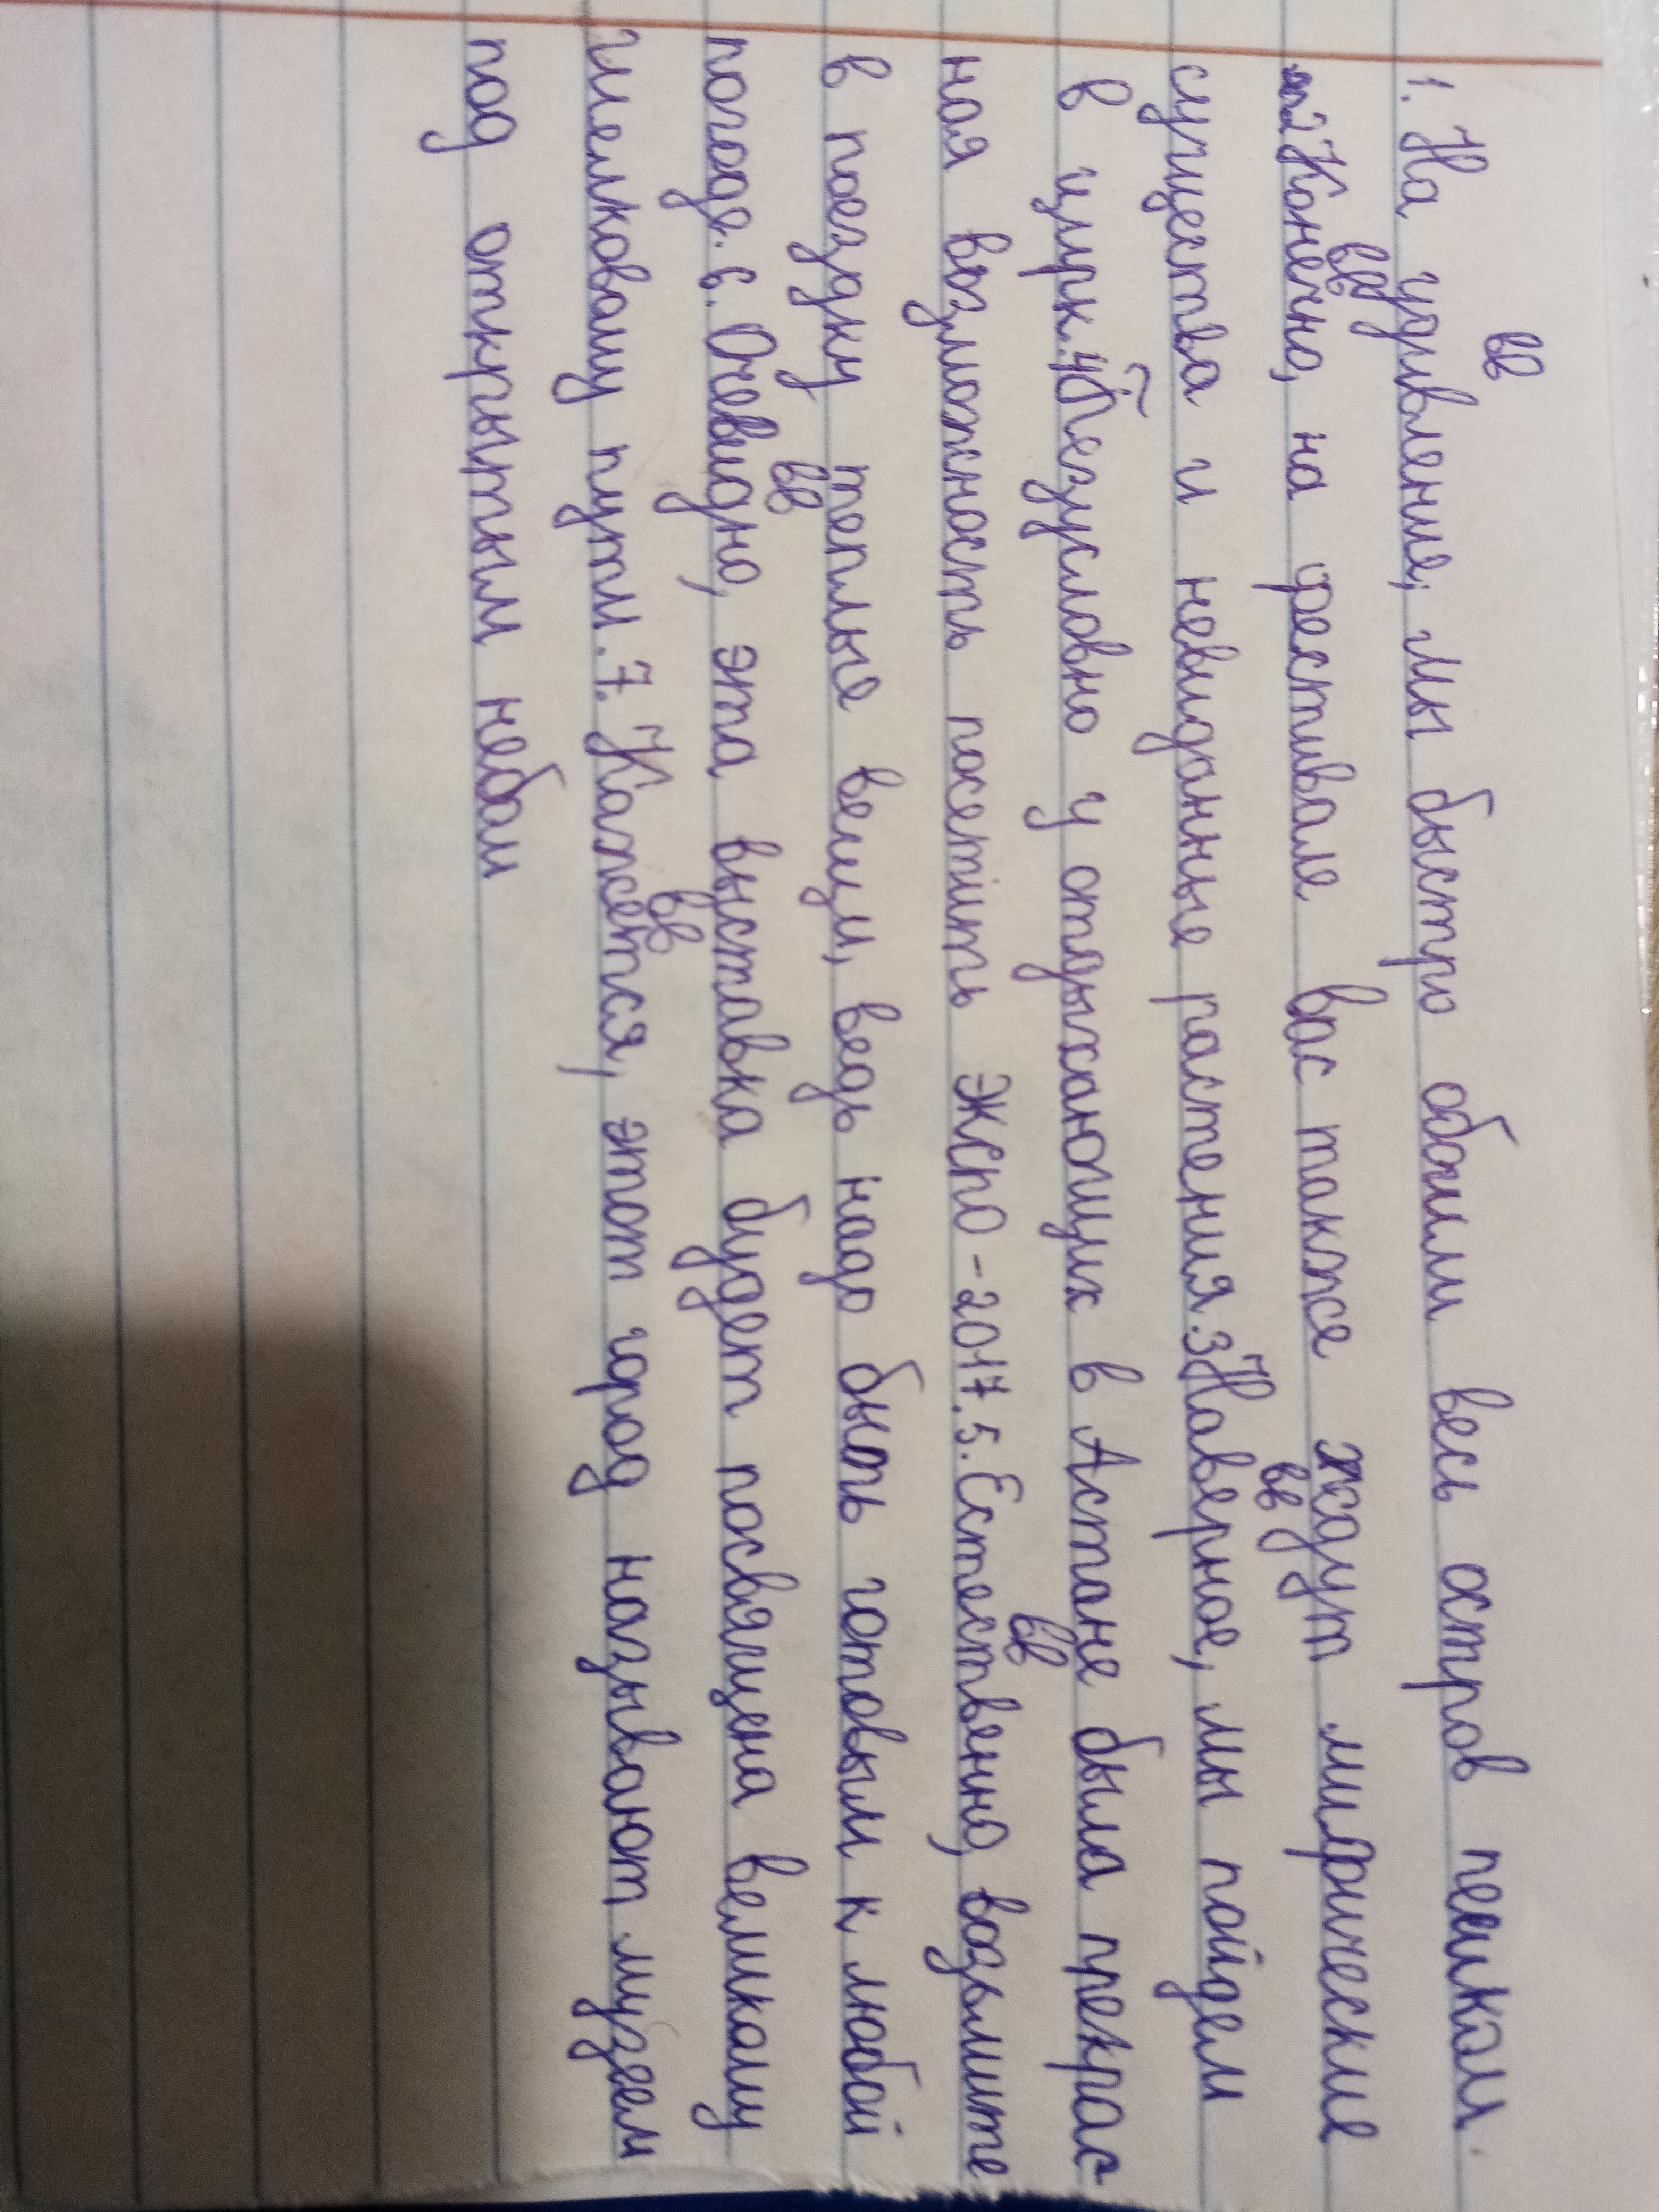 вв
1. На удивление, мы быстро обошли весь остров пешком.
вв
2 Конечно, на фестивале вас также ждут мифические
вв
существа и невиданные растения. 3 Наверное, мы пойдем
в цирк. 4 Безусловно у отдыхающих в Астане была прекрас
вв
ная возможность посетить ЭКСПО - 2017. 5. Естественно, возьмите
в поездку теплые вещи, ведь надо быть готовым к любой
вв
погоде. 6. Очевидно, эта выставка будет посвящена великому
шелковому пути. 7. Кажется, этот город называют музеем
вв
под открытым небом